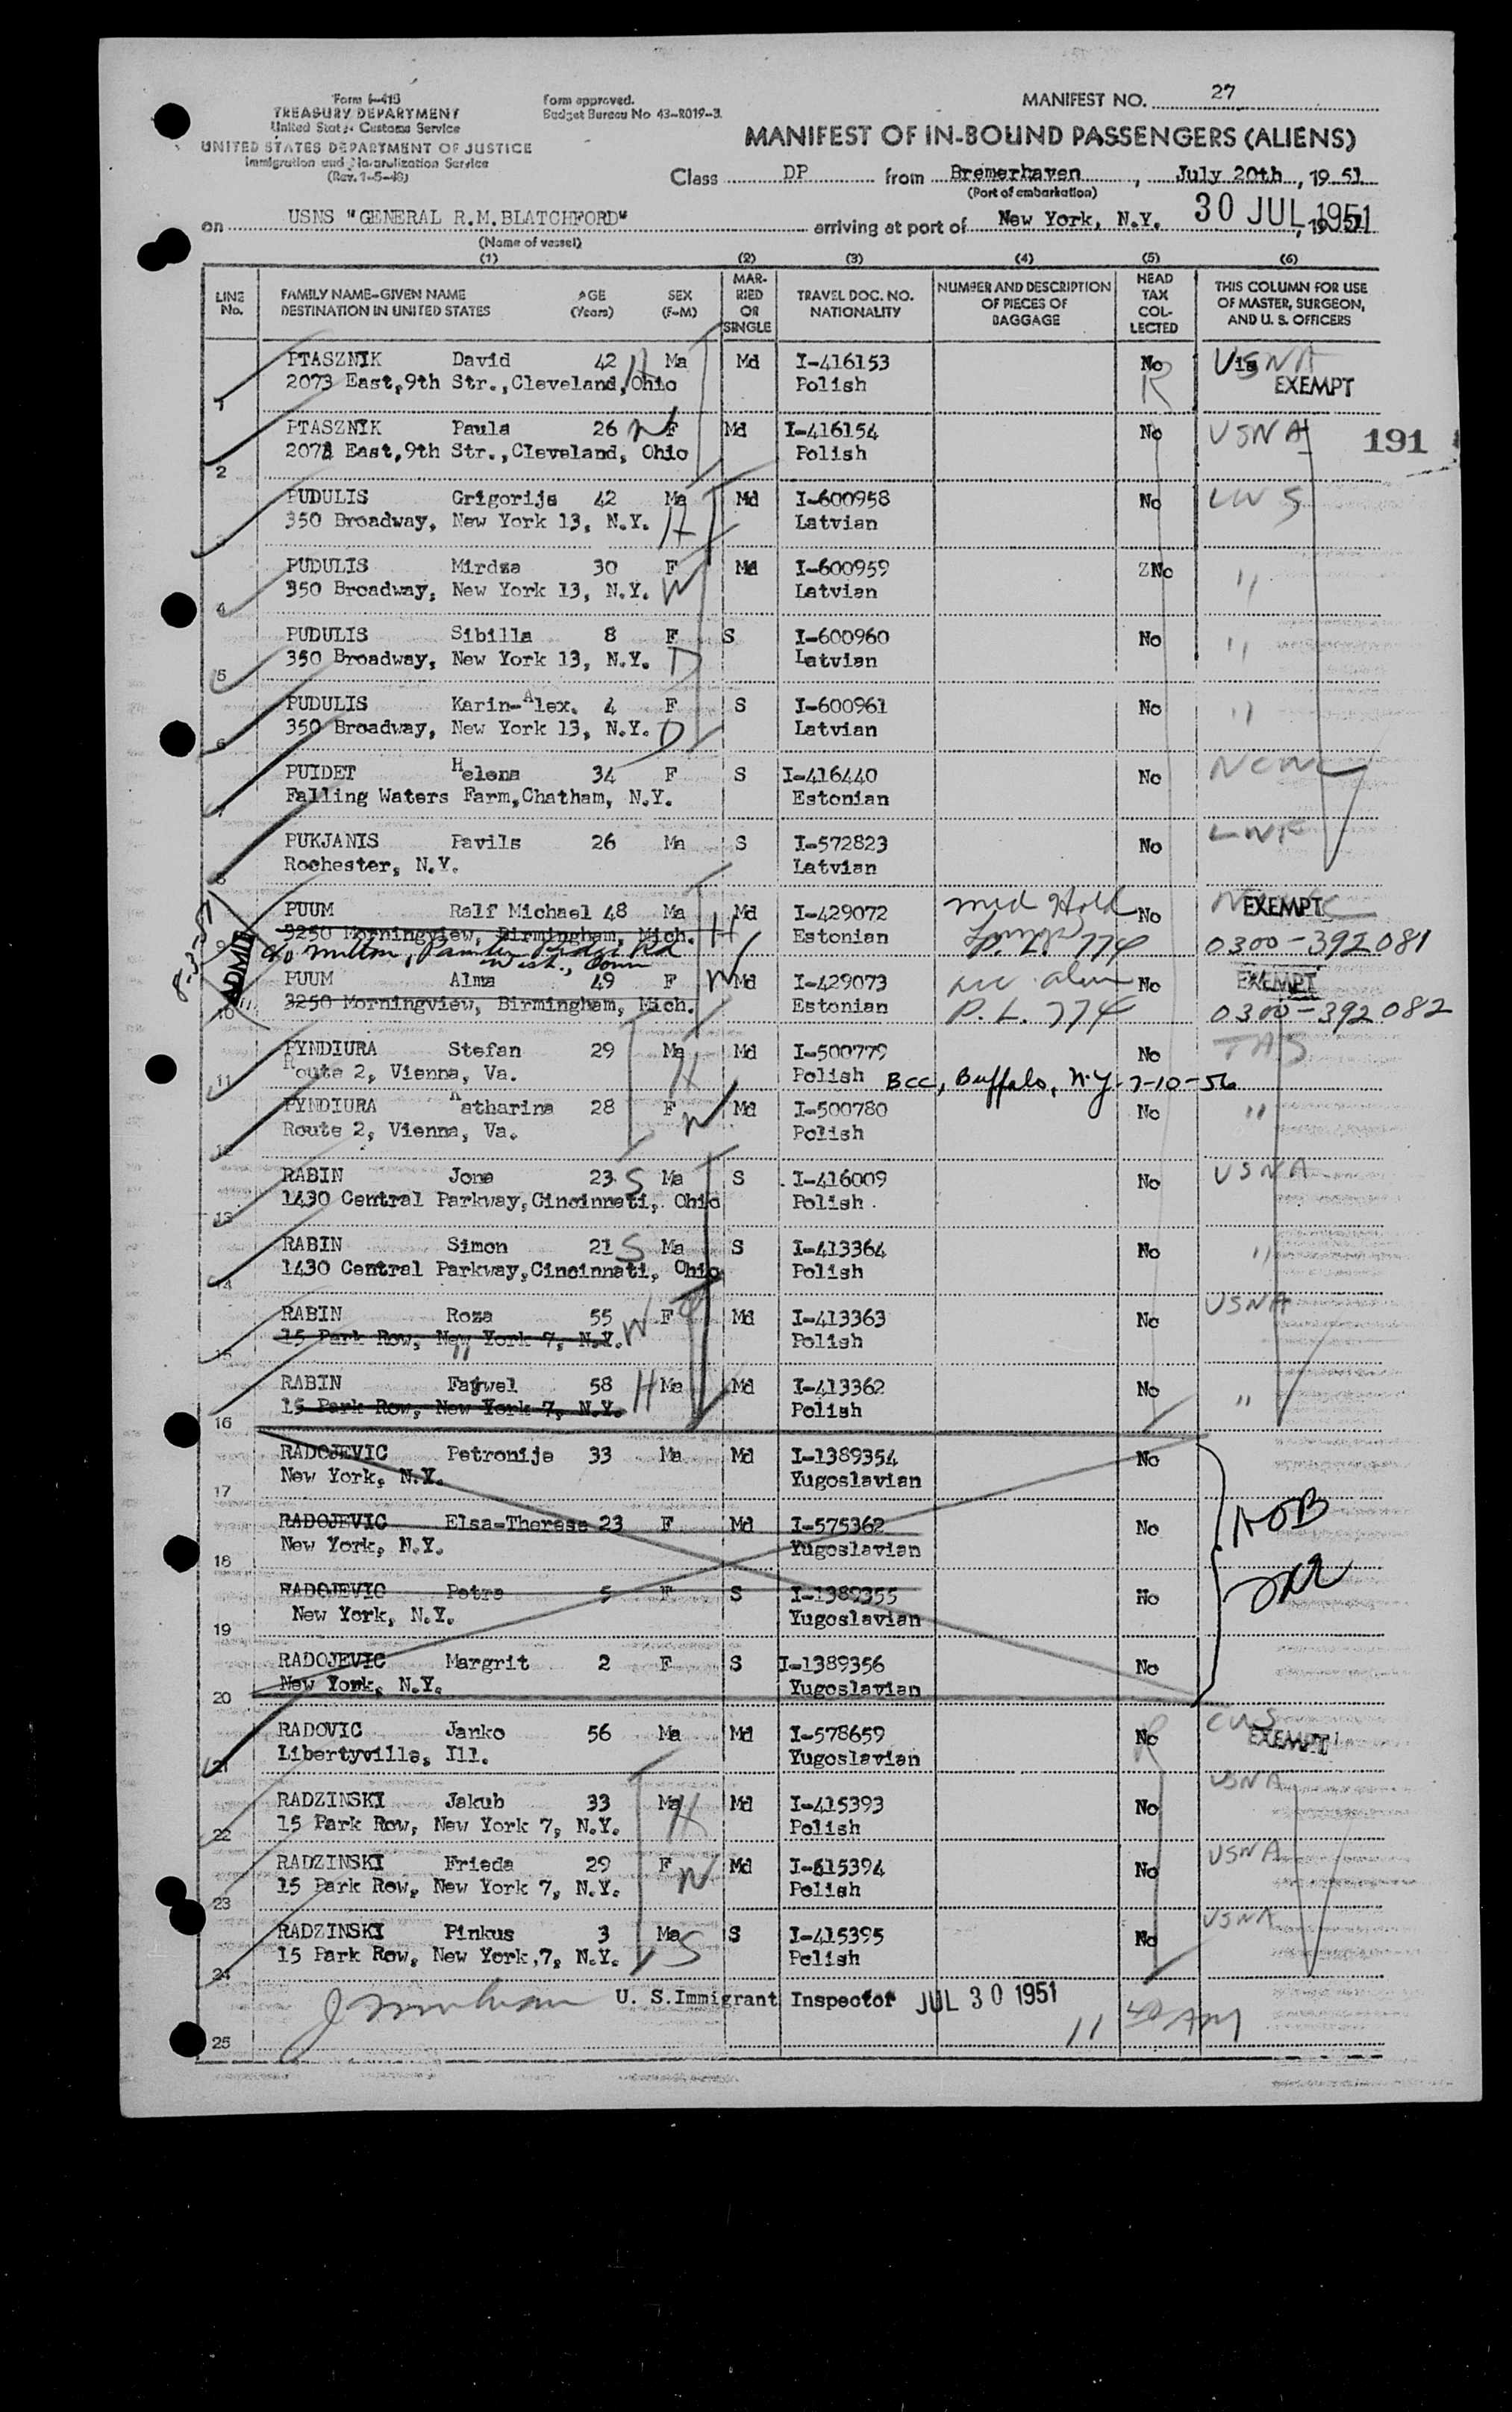 Form I-415
TREASURY DEPARTMENT
United States Customs Service
UNITED STATES DEPARTMENT OF JUSTICE
Immigration and Naturalization Service
(Rev. 1-5-48)
Form approved.
Budget Bureau No 43-R019-3.
MANIFEST NO. 27
MANIFEST OF IN-BOUND PASSENGERS (ALIENS)
Class DP from Bremerhaven, July 20th, 1951
(Port of embarkation)
on USNS "GENERAL R.M.BLATCHFORD" arriving at port of New York, N.Y. 30 JUL 1951, 19 51
(Name of vessel)
(1) (2) (3) (4) (5) (6)
LINE No. FAMILY NAME-GIVEN NAME DESTINATION IN UNITED STATES AGE (Years) SEX (F-M) MARRIED OR SINGLE TRAVEL DOC. NO. NATIONALITY NUMBER AND DESCRIPTION OF PIECES OF BAGGAGE HEAD TAX COLLECTED THIS COLUMN FOR USE OF MASTER, SURGEON, AND U. S. OFFICERS
PTASZNIK David 42 H Ma Md I-416153 No USNA
1 2073 East,9th Str.,Cleveland,Ohio Polish R EXEMPT
PTASZNIK Paula 26 W F Md I-416154 No USNA 191
2 2073 East,9th Str.,Cleveland, Ohio Polish
PUDULIS Grigorijs 42 Ma Md I-600958 No LWS
3 350 Broadway, New York 13, N.Y. H Latvian
PUDULIS Mirdza 30 F Md I-600959 No "
4 350 Broadway, New York 13, N.Y. W Latvian
PUDULIS Sibilla 8 F S I-600960 No "
5 350 Broadway, New York 13, N.Y. D Latvian
PUDULIS Karin-Alex. 4 F S I-600961 No "
6 350 Broadway, New York 13, N.Y. D Latvian
PUIDET Helena 34 F S I-416440 No NCWC
7 Falling Waters Farm,Chatham, N.Y. Estonian
PUKJANIS Pavils 26 Ma S I-572823 No
8 Rochester, N.Y. Latvian
PUUM Ralf Michael 48 Ma Md I-429072 med Hold No EXEMPT
9 3250 Morningview, Birmingham, Mich. H Estonian P.L. 774 0300-392081
8-3-51 ADMIT
c/o Milton,
PUUM Alma 49 F W Md I-429073 acc alien No EXEMPT
10 3250 Morningview, Birmingham, Mich. Estonian P.L. 774 0300-392082
PYNDIURA Stefan 29 Ma Md I-500779 No
11 Route 2, Vienna, Va. H Polish BCC, Buffalo, N.Y. 7-10-56
PYNDIURA Katharina 28 F W Md I-500780 No "
12 Route 2, Vienna, Va. Polish
RABIN Jona 23 S Ma S I-416009 No USNA
13 1430 Central Parkway,Cincinnati, Ohio Polish
RABIN Simon 21 S Ma S I-413364 No "
14 1430 Central Parkway,Cincinnati, Ohio Polish
RABIN Roza 55 F Md I-413363 No USNA
15 15 Park Row, New York 7, N.Y. W Polish
RABIN Fajwel 58 H Ma Md I-413362 No "
16 15 Park Row, New York 7, N.Y. Polish
RADOJEVIC Petronije 33 Ma Md I-1389354 No
17 New York, N.Y. Yugoslavian
RADOJEVIC Elsa-Therese 23 F Md I-575362 No NOB
18 New York, N.Y. Yugoslavian
RADOJEVIC Petra 5 F S I-1389355 No
19 New York, N.Y. Yugoslavian
RADOJEVIC Margrit 2 F S I-1389356 No
20 New York, N.Y. Yugoslavian
RADOVIC Janko 56 Ma Md I-578659 No CWS
21 Libertyville, Ill. Yugoslavian R EXEMPT
RADZINSKI Jakub 33 Ma Md I-415393 No USNA
22 15 Park Row, New York 7, N.Y. H Polish
RADZINSKI Frieda 29 F W Md I-415394 No USNA
23 15 Park Row, New York 7, N.Y. Polish
RADZINSKI Pinkus 3 Ma S I-415395 No USNA
24 15 Park Row, New York,7, N.Y. S Polish
U. S.Immigrant Inspector JUL 30 1951
25 11 40 AM